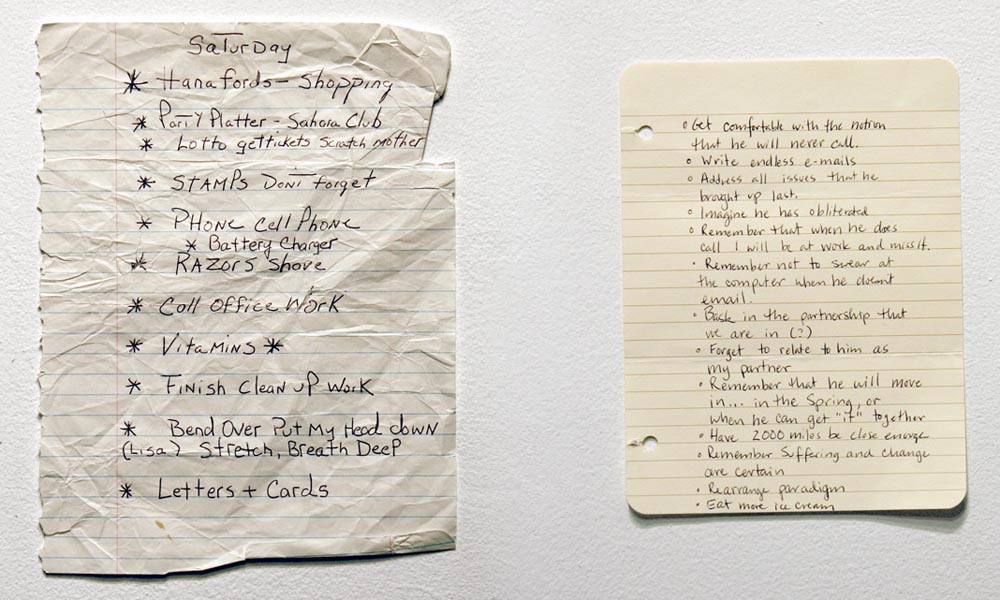 SaTurDay
* Hanafords - Shopping
* ParTY Platter - Sahara Club
* Lotto gettickets Scratch Mother
* STAMPS DonT forget
* PHone Cell Phone
* Battery Charger
* RAZORS Shave
* Call OFFice Work
* VitaMins *
* FINISH Clean uP Work
* Bend Over Put My Head down
(Lisa) Stretch, Breath Deep
* Letters + Cards
• Get comfortable with the notion
that he will never call.
• Write endless e-mails
• Address all issues that he
brought up last.
• Imagine he has obliterated
• Remember that when he does
call I will be at work and miss it.
• Remember not to swear at
the computer when he doesn't
email.
• Bask in the partnership that
we are in (?)
• Forget to relate to him as
my partner
• Remember that he will move
in... in the Spring, or
when he can get "it" together
• Have 2000 miles be close enough
• Remember Suffering and change
are certain
• Rearrange paradigm
• Eat more ice cream